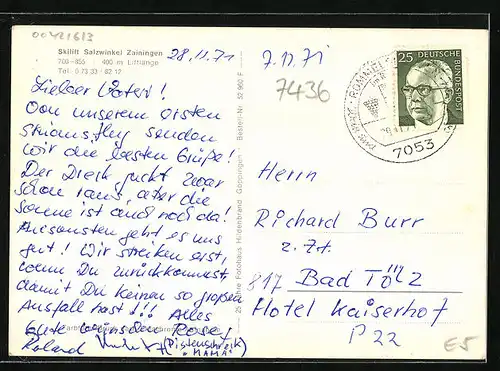 00421613
Skilift Salzwinkel Zainingen
700 - 855 400 m Liftlänge
Tel. 0 73 33 - 82 12
28.11.71
Lieber Vater!
Von unserem ersten
senden
wir die besten Grüße!
Der Dreck guckt zwar
schon raus, aber die
Sonne ist auch noch da!
Ansonsten geht es uns
gut! Wir streiken erst,
wenn Du zurückkommst,
damit Du keinen so großen
Ausfall hast!!! Alles
Gute wünschen Rose,
Roland
(Pistenschreck)
"MAMA"
Fotohaus Hildenbrand Göppingen Bestell-Nr. 52 900 F
7.11.71
7436
25 DEUTSCHE BUNDESPOST
7053
Herrn
Richard Burr
z. Zt.
817 Bad Tölz
Hotel Kaiserhof
P 22
E5